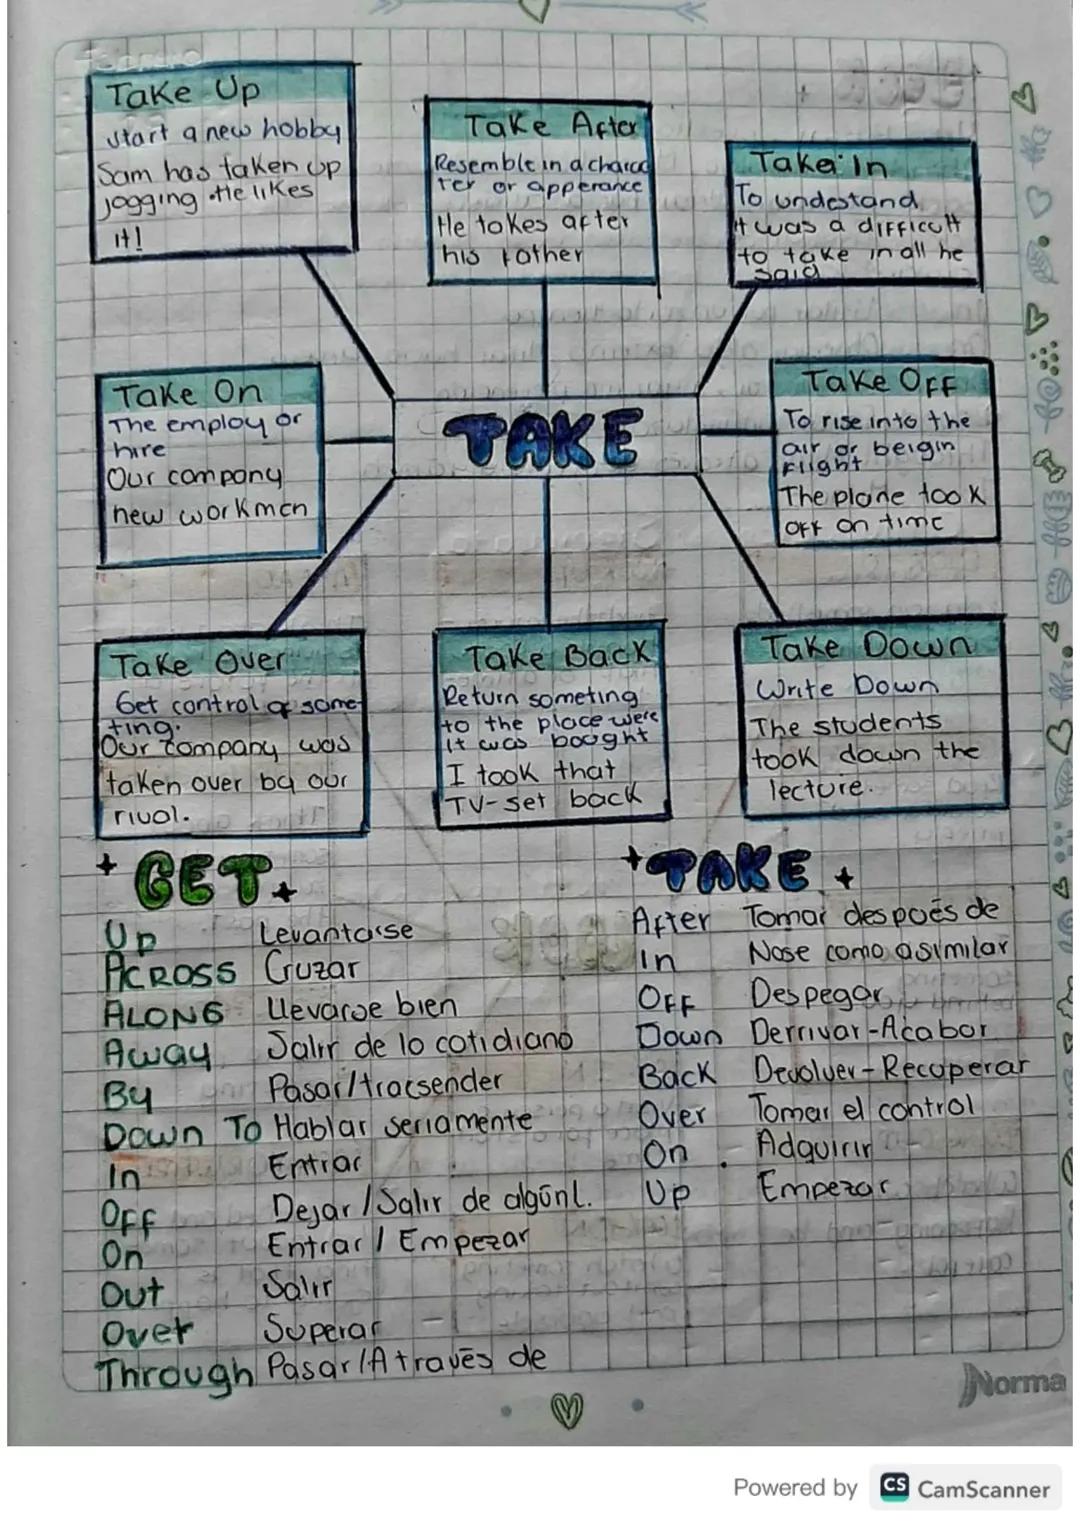 Take Up
Start a new hobby
Sam has taken up
jogging. He likes
it!
Take After
Resemble in a charac
ter or apperance
He takes after
his father
Take In
To undestand
It was a difficult
to take in all he
said
Take On
The employ or
hire
Our company
new workmen
TAKE
Take Off
To rise into the
air or beigin
Flight
The plane took
off on time
Take Over
Get control of some-
ting.
Our company was
taken over by our
rival.
Take Back
Return someting
to the place were
it was bought
I took that
TV-set back
Take Down
Write Down
The students
took down the
lecture.
GET
Up Levantarse
ACROSS Cruzar
ALONG Llevarse bien
Away Salir de lo cotidiano
By Pasar/tracsender
Down To Hablar seriamente
In Entrar
Off Dejar/Salir de algúnl.
On Entrar/Empezar
Out Salir
Over Superar
Through Pasar/Através de
TAKE
After Tomar después de
In Nose como asimilar
Off Despegar
Down Derrivar-Acabar
Back Devolver-Recuperar
Over Tomar el control
On Adquirir
Up Empezar
Norma
Powered by CS CamScanner